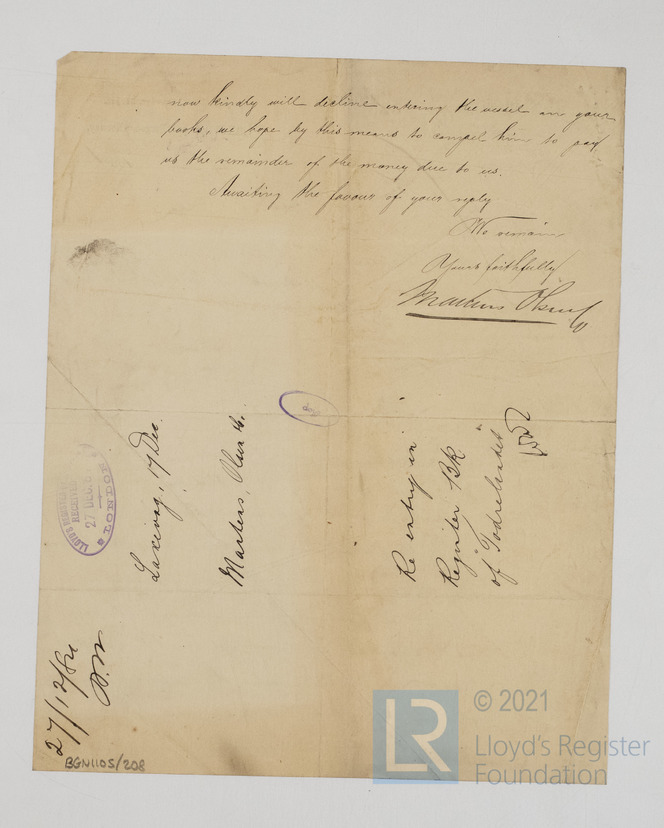 now kindly will decline entering the vessel on your
books, we hope by this means to compel him to pay
us the remainder of the money due to us.
Awaiting the favour of your reply
We remain,
Yours faithfully
Martens Olsen
Laxevag, 17 Dec.
Martens, Olsen &
Re entry in
Register Bk
of "
LLOYD'S REGISTER
RECEIVED
27 DEC.
LONDON
27/12/
BGN1105/208
LR
© 2021
Lloyd's Register
Foundation